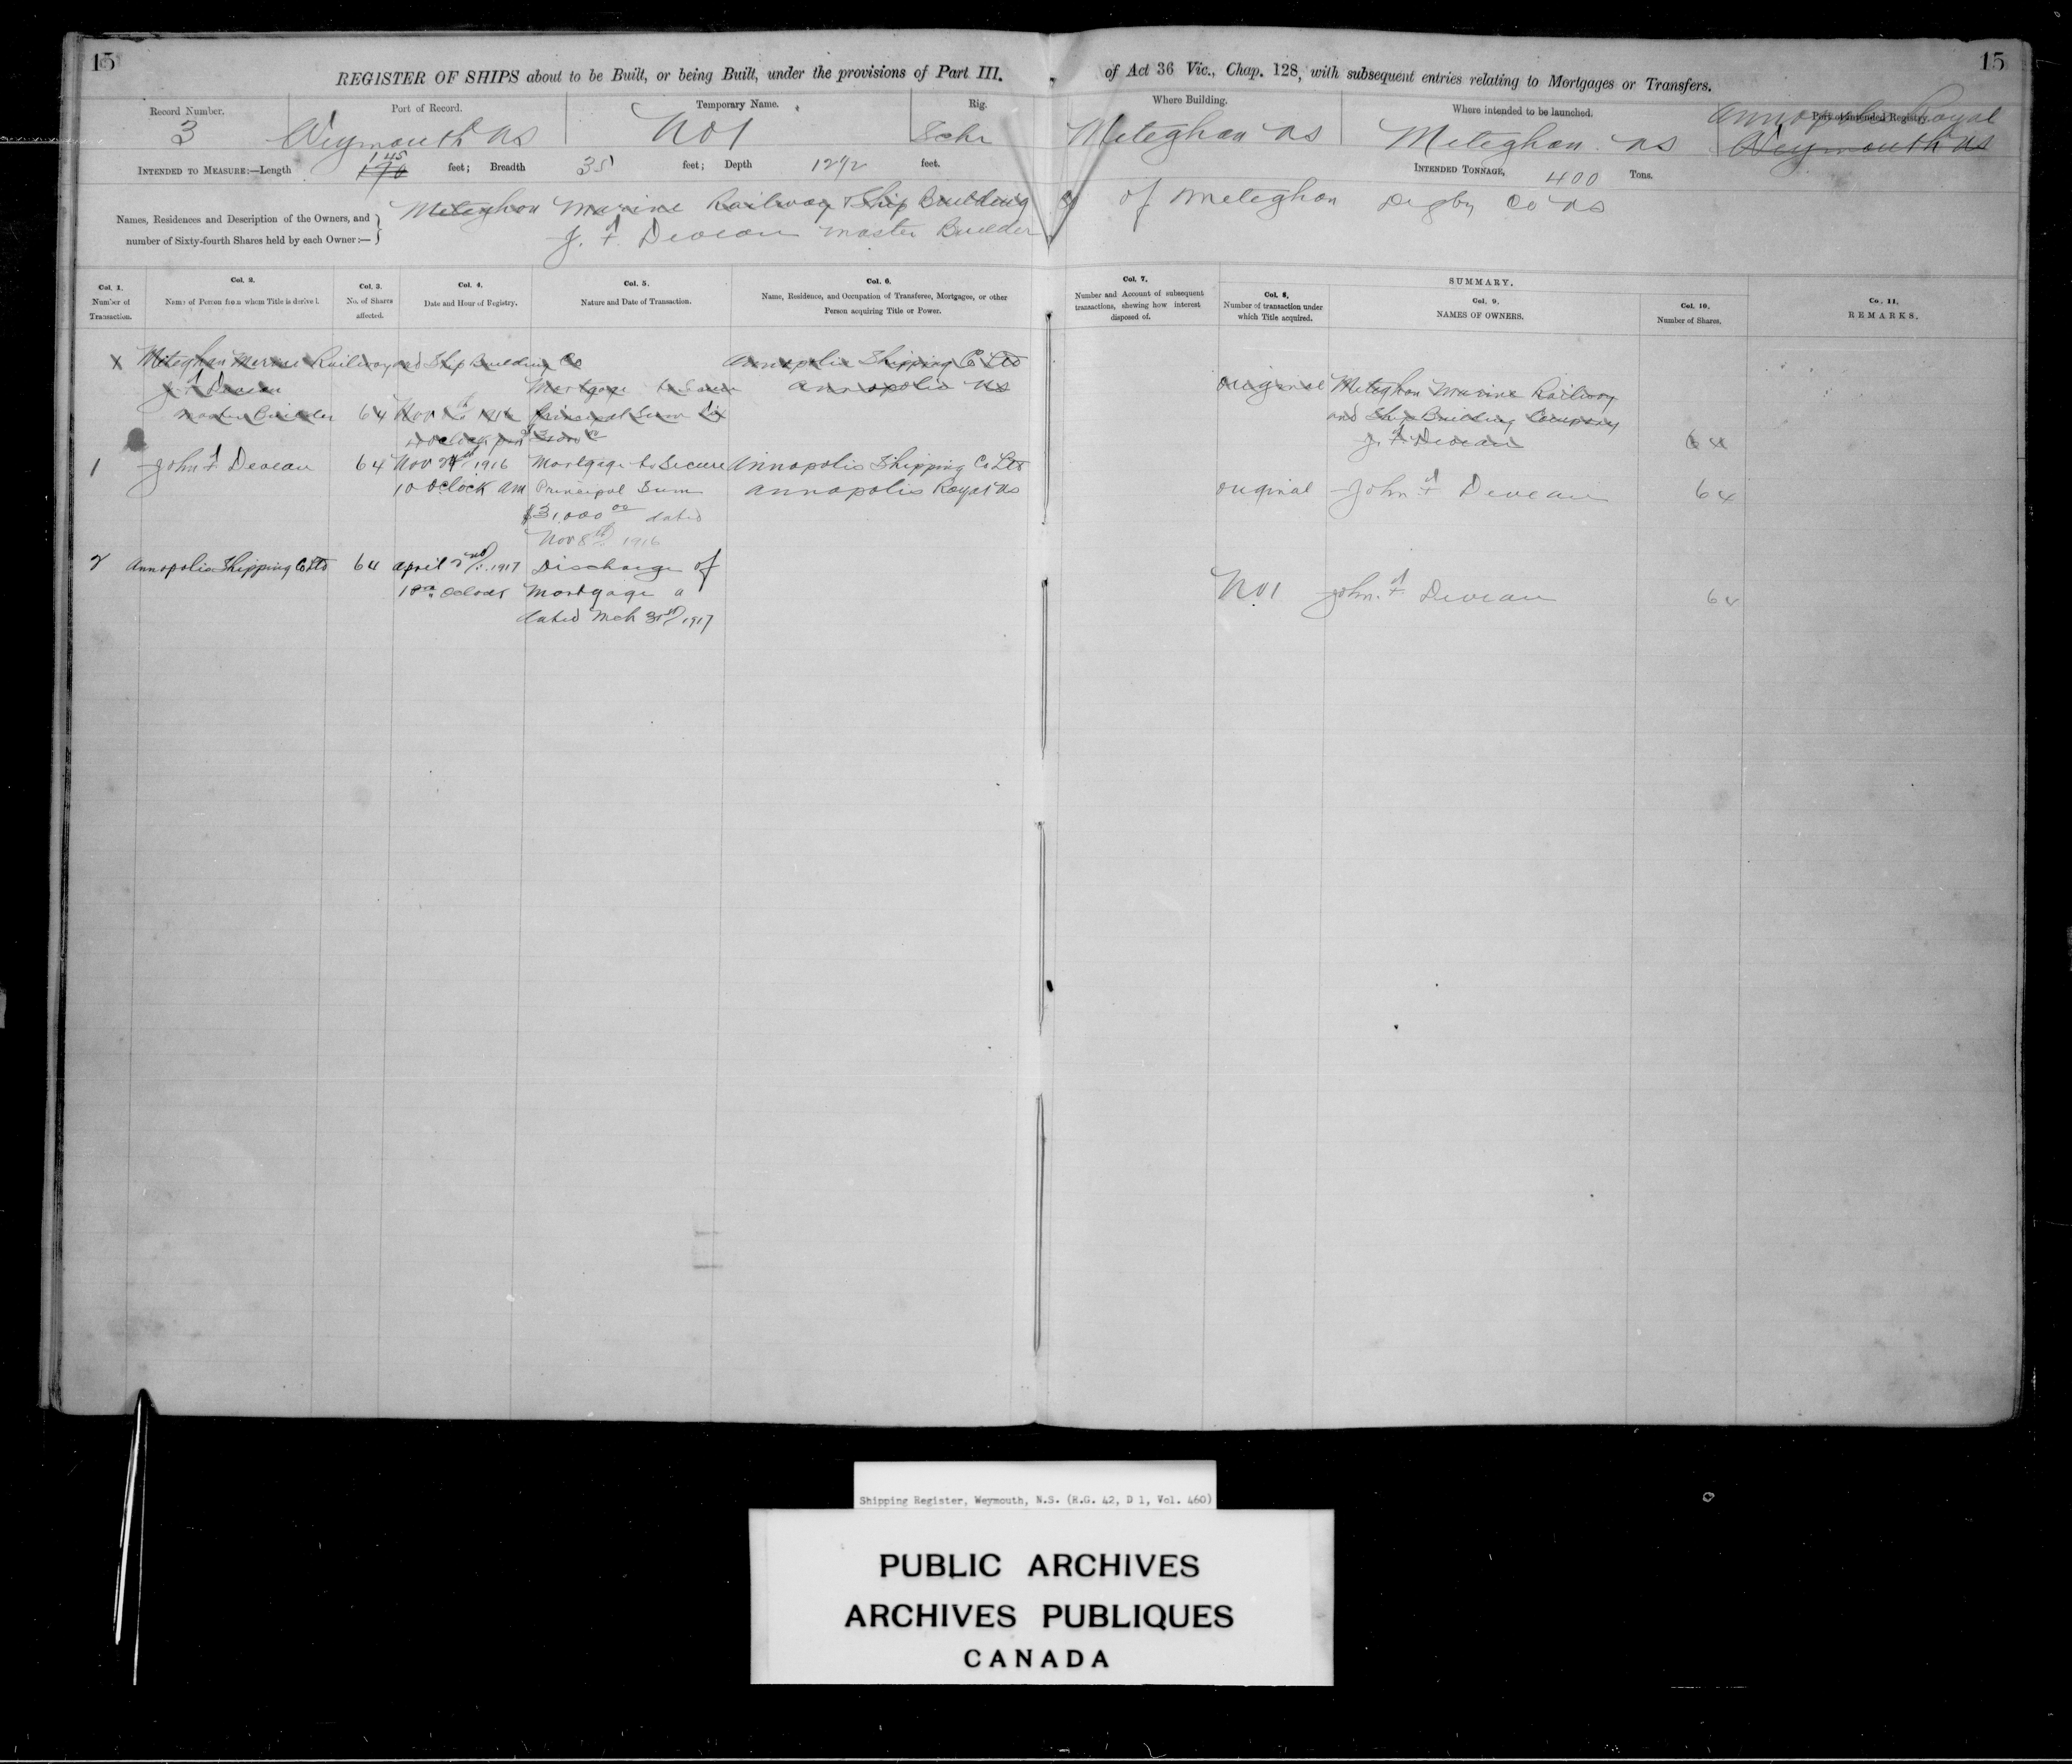 15
15
REGISTER OF SHIPS about to be Built, or being Built, under the provisions of Part III. of Act 36 Vic., Chap. 128, with subsequent entries relating to Mortgages or Transfers.
Record Number. Port of Record. Temporary Name. Rig. Where Building. Where intended to be launched. Port of Intended Registry.
Annapolis Royal
3 Weymouth NS No 1 Schr Meteghan NS Meteghan NS Weymouth NS
145
INTENDED TO MEASURE:—Length 170 feet; Breadth 35 feet; Depth 12 1/2 feet. INTENDED TONNAGE, 400 Tons.
Names, Residences and Description of the Owners, and number of Sixty-fourth Shares held by each Owner:—
Meteghan Marine Railway & Ship Building Co of Meteghan Digby Co NS
J. F. Deveau Master Builder
Col. 1. Number of Transaction.
Col. 2. Name of Person from whom Title is derived.
Col. 3. No. of Shares affected.
Col. 4. Date and Hour of Registry.
Col. 5. Nature and Date of Transaction.
Col. 6. Name, Residence, and Occupation of Transferee, Mortgagee, or other Person acquiring Title or Power.
Col. 7. Number and Account of subsequent transactions, shewing how interest disposed of.
SUMMARY.
Col. 8. Number of transaction under which Title acquired.
Col. 9. NAMES OF OWNERS.
Col. 10. Number of Shares.
Co. 11. REMARKS.
Meteghan Marine Railway and Ship Building Co Annapolis Shipping Co Ltd
J F Deveau Mortgage to Secure Annapolis NS original Meteghan Marine Railway
Master Builder 64 Nov 1916 Principal Sum and Ship Building Company
J. F. Deveau 64
1 John F Deveau 64 Nov 24th 1916 Mortgage to Secure Annapolis Shipping Co Ltd
10 Oclock am Principal Sum Annapolis Royal NS original John F Deveau 64
$31,000 00 dated
Nov 8th 1916
2 Annapolis Shipping Co Ltd 64 April 2nd 1917 Discharge of
Oclock Mortgage No 1 John. F. Deveau 64
dated Mch 31st 1917
Shipping Register, Weymouth, N.S. (R.G. 42, D 1, Vol. 460)
PUBLIC ARCHIVES
ARCHIVES PUBLIQUES
CANADA